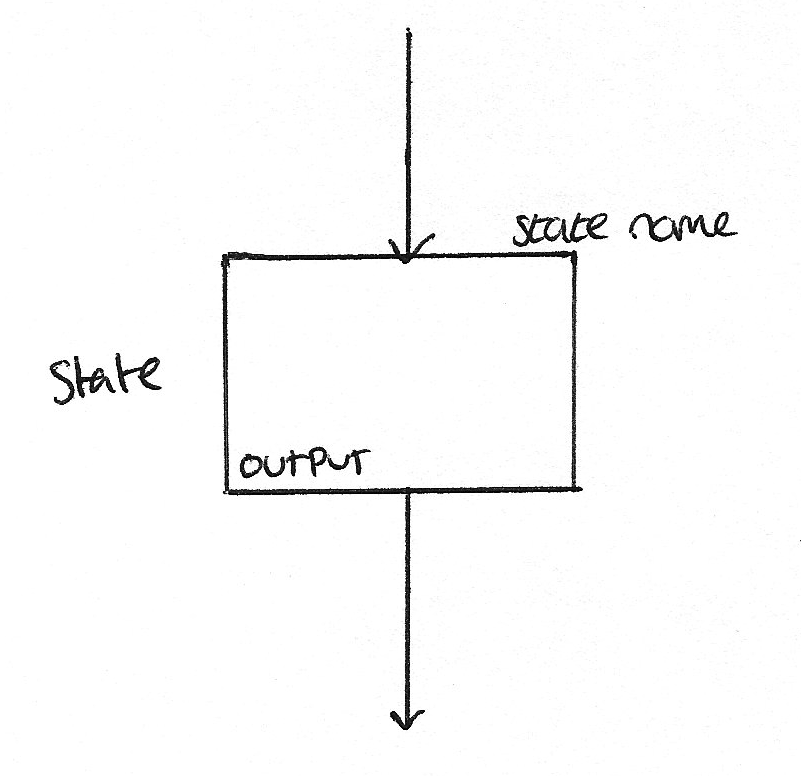 state name
State
OUTPUT